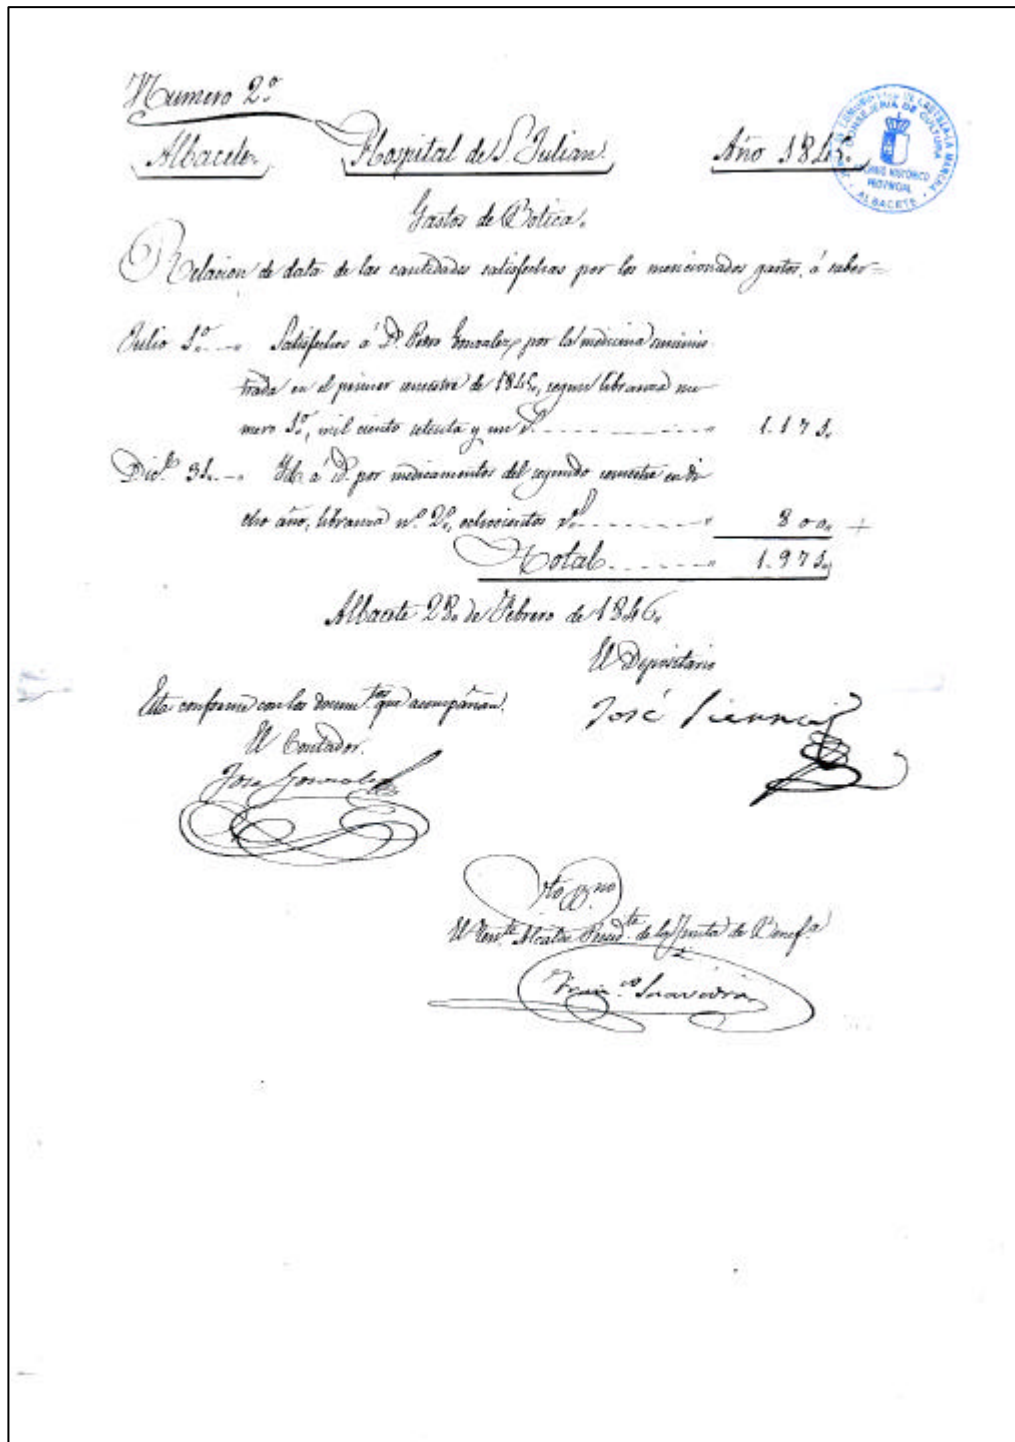 Numero 2º
Albacete. Hospital de S. Julian. Año 1845.
JUNTA DE COMUNIDADES DE CASTILLA-LA MANCHA
CONSEJERIA DE CULTURA
ARCHIVO HISTÓRICO
PROVINCIAL
ALBACETE
Gastos de Botica.
Relacion de data de las cantidades satisfechas por los mencionados gastos, á saber=
Julio 1º Satisfechos á Dn. Pedro Gonzalez, por la medicina suminis
trada en el primer semestre de 1845, segun libranza nu
mero 1º, mil ciento setenta y un rs. 1.171.
Dice. 31. Id. á id. por medicamentos del segundo semestre en di
cho año, libranza nº 2º, ochocientos rs. 800.
Total 1.971.
Albacete 28. de Febrero de 1846.
El Depositario
Esta conforme con los documtos. que acompañan. José
El Contador.
Jose Gonzalez
Vto. Bno
El Tente. Alcalde Presidte. de la Junta de Benefa.
Franco. Saavedra